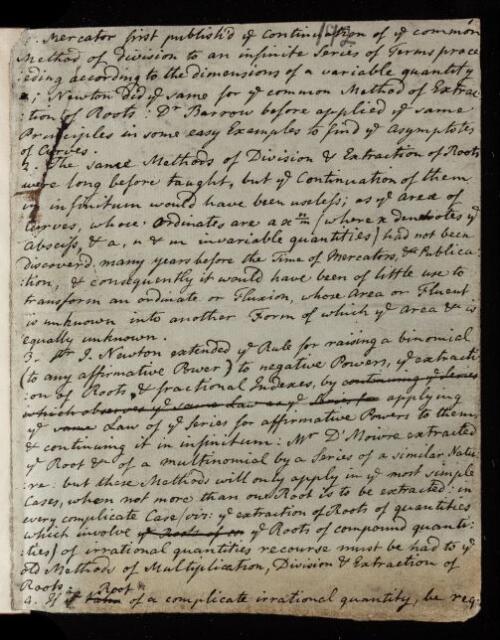 1. Mercator first publish'd yͤ Continuation of yͤ common
Method of Division to an infinite Series of Terms proce
:eding according to the Dimensions of a variable quantity
; Newton Did yͤ same for yͤ common Method of Extrac
:tion of Roots: Dʳ Barrow before applied yͤ same
Principles in some easy Examples to find yͤ Asymptotes
of Curves.
2. The same Methods of Division & Extraction of Roots
were long before taught, but yͤ Continuation of them
in infinitum would have been useless; as yͤ Area of
Curves, whose Ordinates are a x (where x denotes yͤ
Absciss, & a, n & m invariable quantities) had not been
discoverd many years before the Time of Mercators, &c Publica:
:tion, & consequently it would have been of little use to
transform an ordinate or Fluxion, whose Area or Fluent
is unknown into another Form of which yͤ Area &c is
equally unknown.
3. Sʳ I. Newton extended yͤ Rule for raising a binomial
(to any affirmative Power) to negative Powers, yͤ extracti:
:on of Roots, & fractional Indexes, by continuing yͤ Series
which observes yͤ same Law as yͤ applying
yͤ same Law of yͤ Series for affirmative Powers to them,
& continuing it in infinitum: Mʳ D'Moivre extracted
yͤ Root &c of a multinomial by a Series of a similar Natu:
:re: but these Methods will only apply in yͤ most simple
Cases, when not more than one Root is to be extracted: in
every complicate Case (viz: yͤ extraction of Roots of quantities
which involve yͤ Roots of yͤ Roots of compound quanti:
:ties) of irrational quantities recourse must be had to yͤ
old Methods of Multiplication, Division & Extraction of
Roots.
Root
4. If of a complicate irrational quantity, be req: